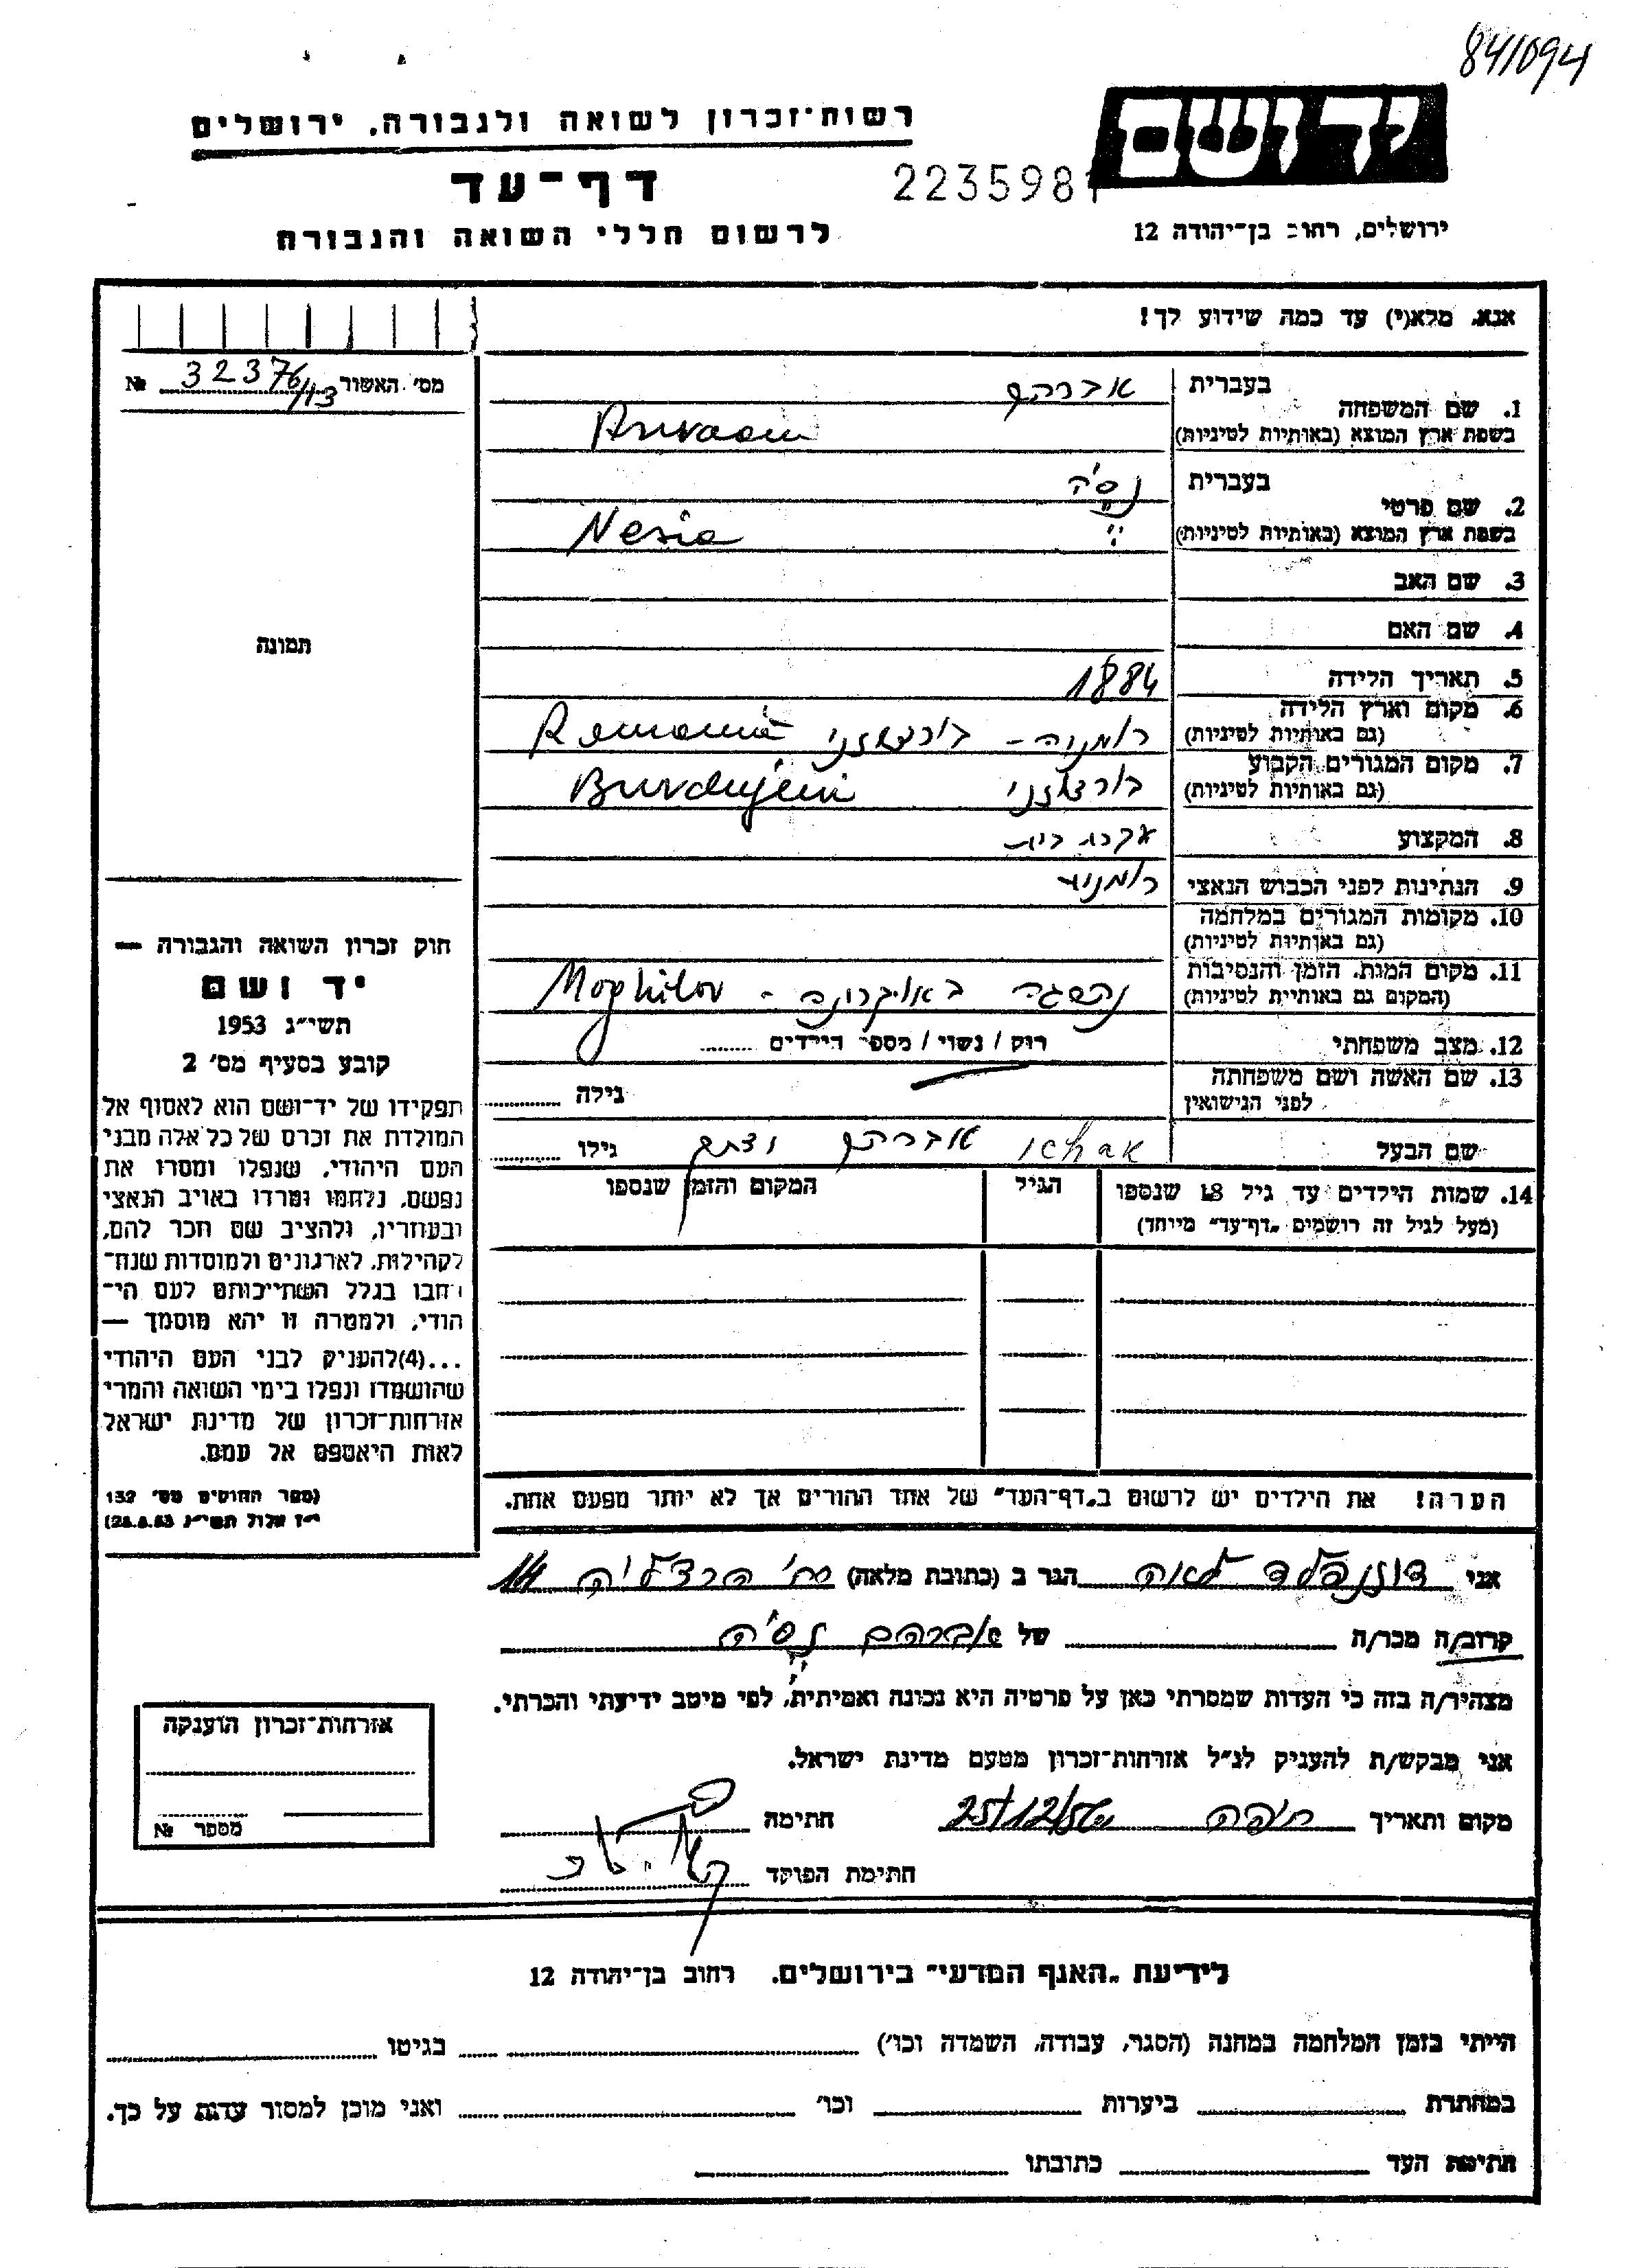 84/094
יד ושם
רשות־זכרון לשואה ולגבורה, ירושלים
דף־עד
2235981
לרשום חללי השואה והגבורה
ירושלים, רחוב בן־יהודה 12
אנא, מלא(י) עד כמה שידוע לך!
מס׳ האשור 32376/113 №
1. שם המשפחה
בעברית אברהם
בשפת ארץ המוצא (באותיות לטיניות)
2. שם פרטי
בעברית נסיה
בשפת ארץ המוצא (באותיות לטיניות) Nesia
3. שם האב
4. שם האם
5. תאריך הלידה 1884
6. מקום וארץ הלידה
(גם באותיות לטיניות) רומניה - Romania
7. מקום המגורים הקבוע
(גם באותיות לטיניות) Burdujeni
8. המקצוע עקרת בית
9. הנתינות לפני הכבוש הנאצי
10. מקומות המגורים במלחמה
(גם באותיות לטיניות)
11. מקום המות, הזמן והנסיבות
(המקום גם באותיות לטיניות) באוקרינה - Moghilov
12. מצב משפחתי רוק / נשוי / מספר הילדים
13. שם האשה ושם משפחתה
לפני הנישואין גילה
שם הבעל אברהם גילו
14. שמות הילדים עד גיל 18 שנספו הגיל המקום והזמן שנספו
(מעל לגיל זה רושמים „דף־עד" מיוחד)
הערה! את הילדים יש לרשום ב„דף־העד" של אחד ההורים אך לא יותר מפעם אחת.
תמונה
חוק זכרון השואה והגבורה —
יד ושם
תשי״ג 1953
קובע בסעיף מס׳ 2
תפקידו של יד־ושם הוא לאסוף אל
המולדת את זכרם של כל אלה מבני
העם היהודי, שנפלו ומסרו את
נפשם, נלחמו ומרדו באויב הנאצי
ובעוזריו, ולהציב שם וזכר להם,
לקהילות, לארגונים ולמוסדות שנח־
רבו בגלל השתייכותם לעם הי־
הודי, ולמטרה זו יהא מוסמך —
...(4)להעניק לבני העם היהודי
שהושמדו ונפלו בימי השואה והמרי
אזרחות־זכרון של מדינת ישראל
לאות היאספם אל עמם.
(ספר החוקים מס׳ 132
י״ז אלול תשי״ג 28.8.53)
אני לאה הגר ב (כתובת מלאה) הרצליה 14
קרוב/ה מכר/ה של אברהם נסיה
מצהיר/ה בזה כי העדות שמסרתי כאן על פרטיה היא נכונה ואמיתית, לפי מיטב ידיעתי והכרתי.
אני מבקש/ת להעניק לנ״ל אזרחות־זכרון מטעם מדינת ישראל.
מקום ותאריך חיפה 25/12/56 חתימה
חתימת הפוקד
אזרחות־זכרון הוענקה
מספר №
לידיעת „האגף המדעי" בירושלים. רחוב בן־יהודה 12
הייתי בזמן המלחמה במחנה (הסגר, עבודה, השמדה וכו׳) בגיטו
במחתרת ביערות וכו׳ ואני מוכן למסור עדות על כך.
חתימת העד כתובתו